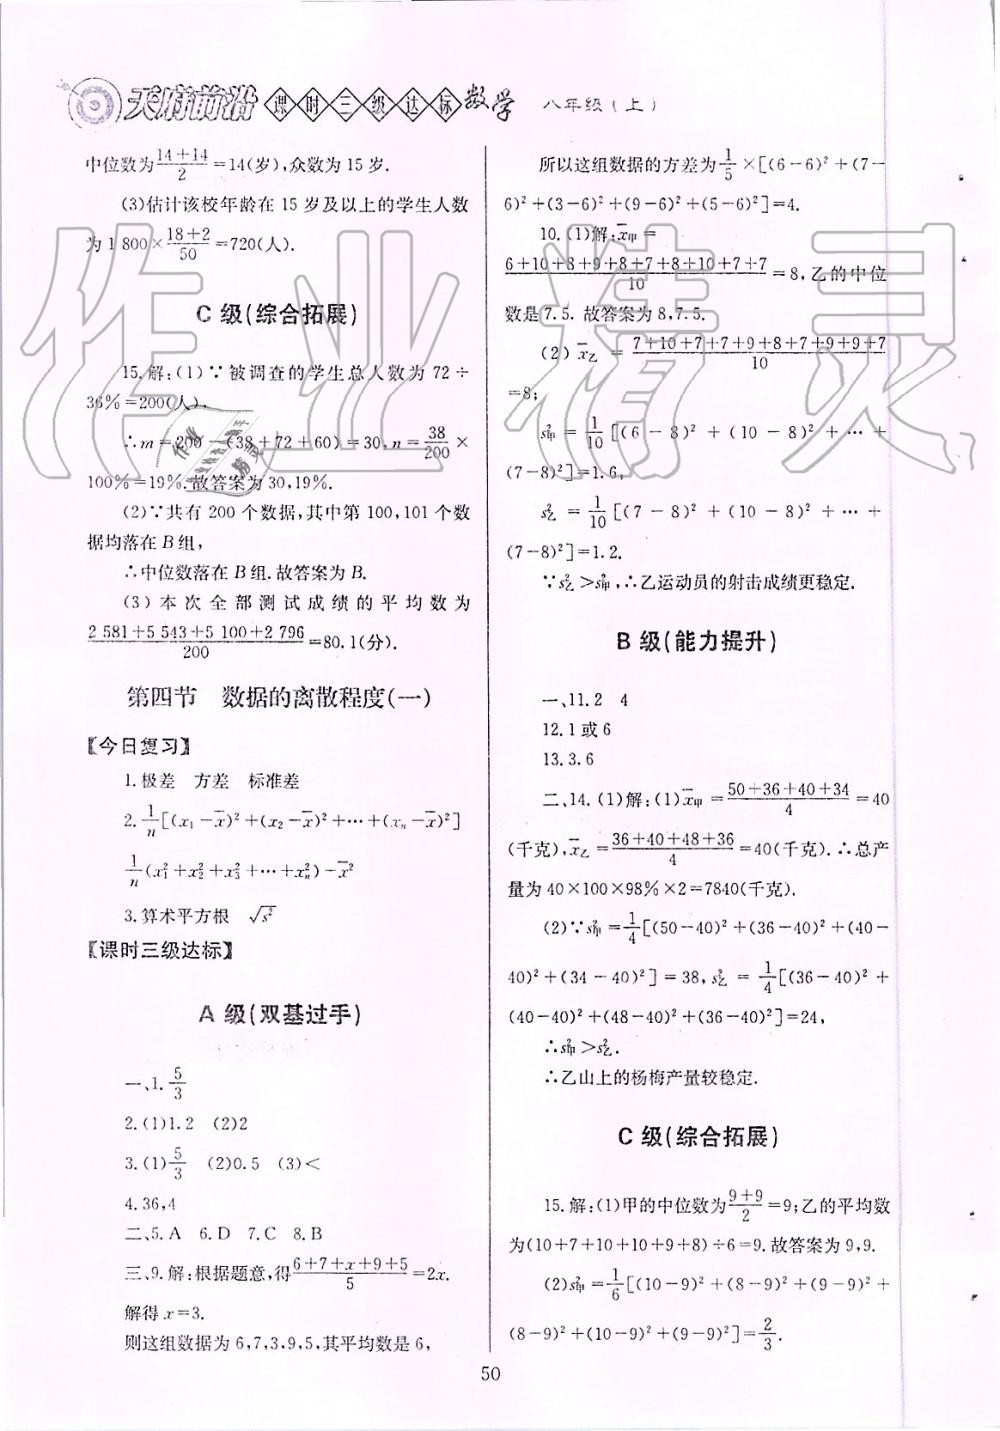 天府前沿 课时三级达标 数学 八年级(上)
中位数为(14+14)/2=14(岁),众数为15岁.
(3)估计该校年龄在15岁及以上的学生人数
为1 800×(18+2)/50=720(人).
C级(综合拓展)
15.解:(1)∵被调查的学生总人数为72÷
36%=200(人).
∴m=200-(38+72+60)=30,n=38/200×
100%=19%.故答案为30,19%.
(2)∵共有200个数据,其中第100,101个数
据均落在B组,
∴中位数落在B组.故答案为B.
(3)本次全部测试成绩的平均数为
(2 581+5 543+5 100+2 796)/200=80.1(分).
第四节 数据的离散程度(一)
【今日复习】
1.极差 方差 标准差
2.1/n[(x₁-x̄)²+(x₂-x̄)²+…+(xₙ-x̄)²]
1/n(x₁²+x₂²+x₃²+…+xₙ²)-x̄²
3.算术平方根 √s²
【课时三级达标】
A级(双基过手)
一、1.5/3
2.(1)1.2 (2)2
3.(1)5/3 (2)0.5 (3)<
4.36,4
二、5.A 6.D 7.C 8.B
三、9.解:根据题意,得(6+7+x+9+5)/5=2x.
解得x=3.
则这组数据为6,7,3,9,5,其平均数是6,
所以这组数据的方差为1/5×[(6-6)²+(7-
6)²+(3-6)²+(9-6)²+(5-6)²]=4.
10.(1)解:x̄甲=
(6+10+8+9+8+7+8+10+7+7)/10=8,乙的中位
数是7.5.故答案为8,7.5.
(2)x̄乙=(7+10+7+7+9+8+7+9+9+7)/10
=8;
s²甲=1/10[(6-8)²+(10-8)²+…+
(7-8)²]=1.6,
s²乙=1/10[(7-8)²+(10-8)²+…+
(7-8)²]=1.2.
∵s²乙>s²甲,∴乙运动员的射击成绩更稳定.
B级(能力提升)
一、11.2 4
12.1或6
13.3.6
二、14.(1)解:(1)x̄甲=(50+36+40+34)/4=40
(千克),x̄乙=(36+40+48+36)/4=40(千克).∴总产
量为40×100×98%×2=7840(千克).
(2)∵s²甲=1/4[(50-40)²+(36-40)²+(40-
40)²+(34-40)²]=38,s²乙=1/4[(36-40)²+
(40-40)²+(48-40)²+(36-40)²]=24,
∴s²甲>s²乙.
∴乙山上的杨梅产量较稳定.
C级(综合拓展)
15.解:(1)甲的中位数为(9+9)/2=9;乙的平均数
为(10+7+10+10+9+8)÷6=9.故答案为9,9.
(2)s²甲=1/6[(10-9)²+(8-9)²+(9-9)²+
(8-9)²+(10-9)²+(9-9)²]=2/3.
50
作业精灵
作业精灵